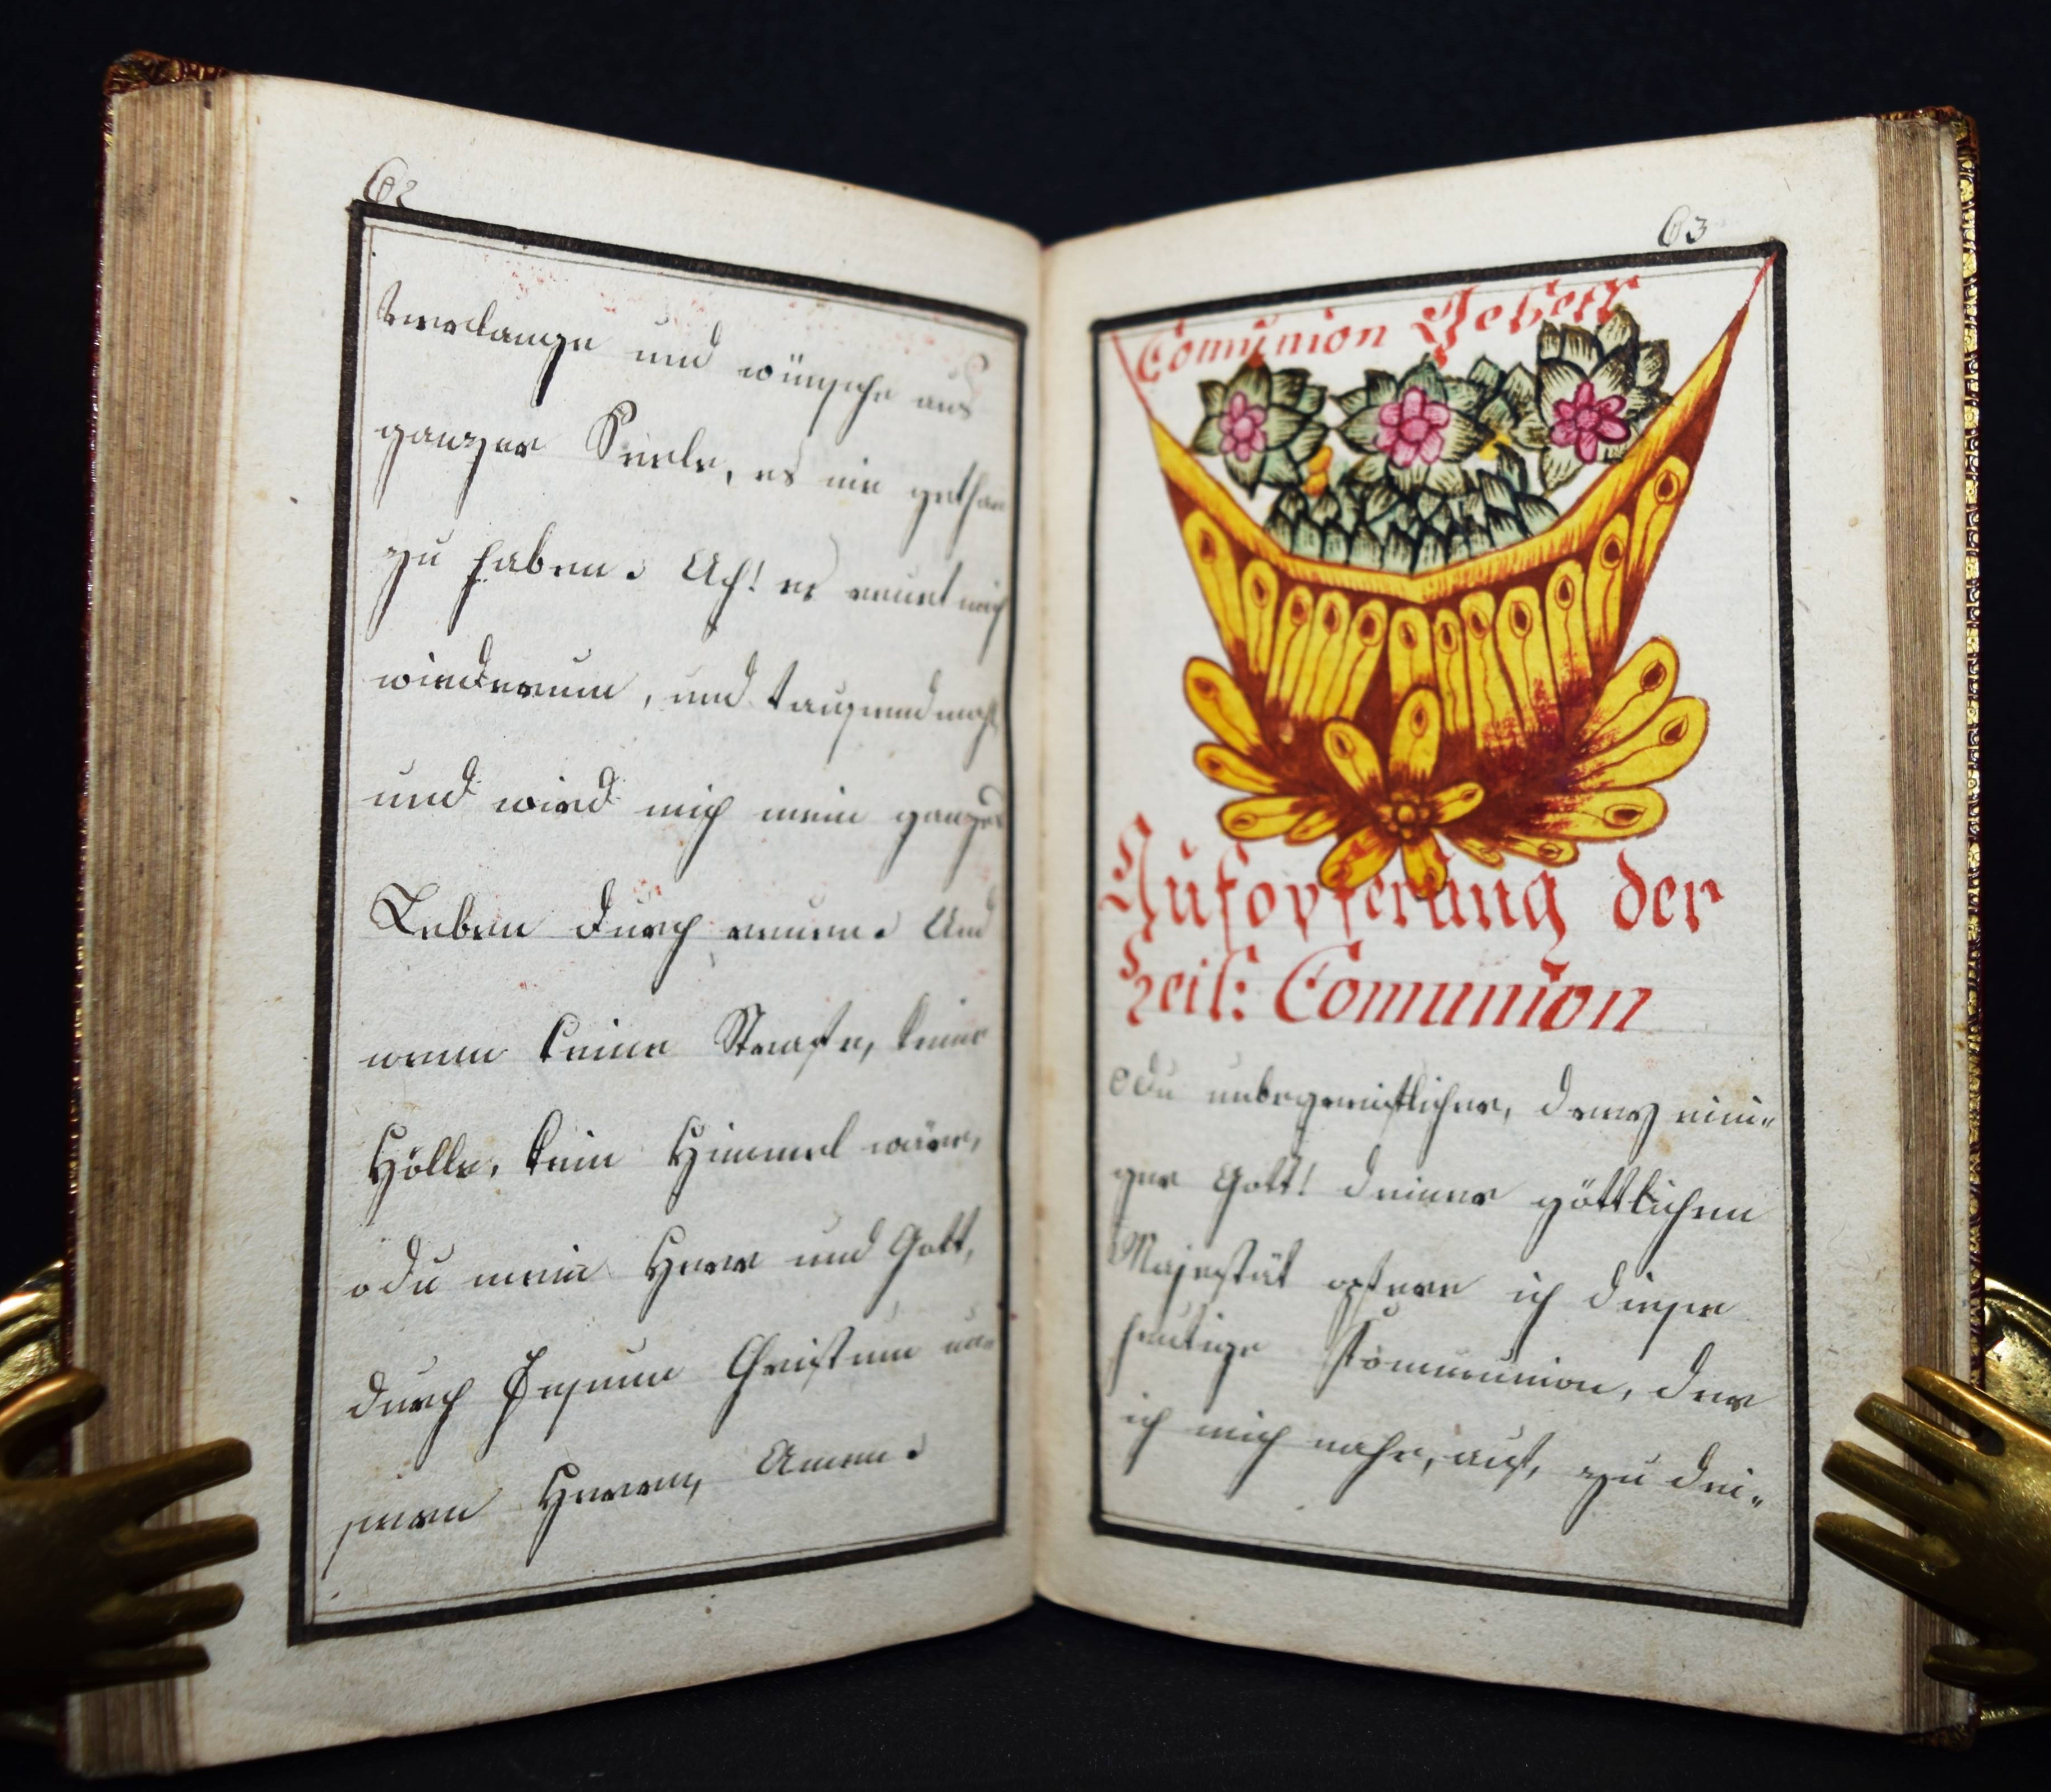 62
verlange und wünsche aus
ganzer Seele, es nie gethan
zu haben. Ach! es reuet mich
wiederum, und tausendmahl
und wird mich mein ganzes
Leben durch reuen. Und
wenn keine Strafe, keine
Hölle, kein Himmel wäre,
o du mein Herr und Gott,
durch Jesum Christum un=
seren Herren, Amen.
63
Comunion Gebett
Aufopferung der
heil: Comunion
O du unbegreiflicher, drey eini=
ger Gott! deiner göttlichen
Majestät opfere ich diese
heutige Kommunion, der
ich mich nahe, auf, zu dei=